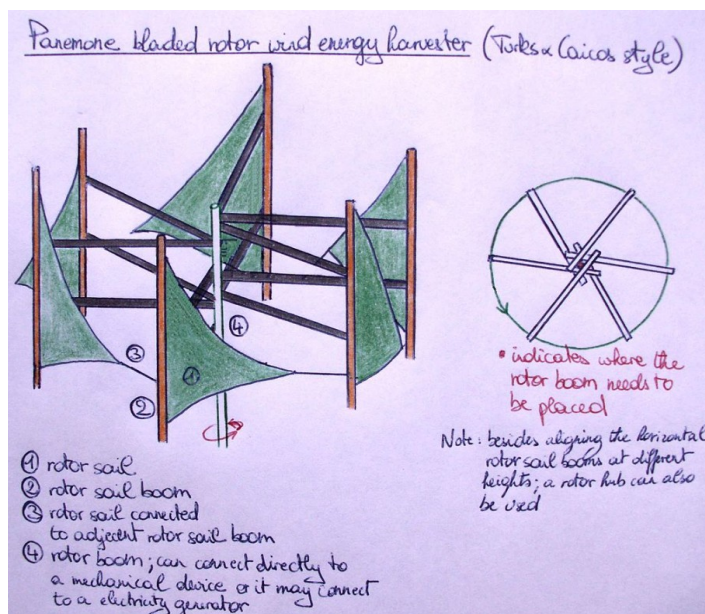 Panemone bladed rotor wind energy harvester (Turks & Caicos style)
③
④
①
②
• indicates where the
rotor boom needs to
be placed
Note: besides aligning the horizontal
rotor sail booms at different
heights; a rotor hub can also
be used
① rotor sail
② rotor sail boom
③ rotor sail connected
to adjacent rotor sail boom
④ rotor boom; can connect directly to
a mechanical device or it may connect
to a electricity generator